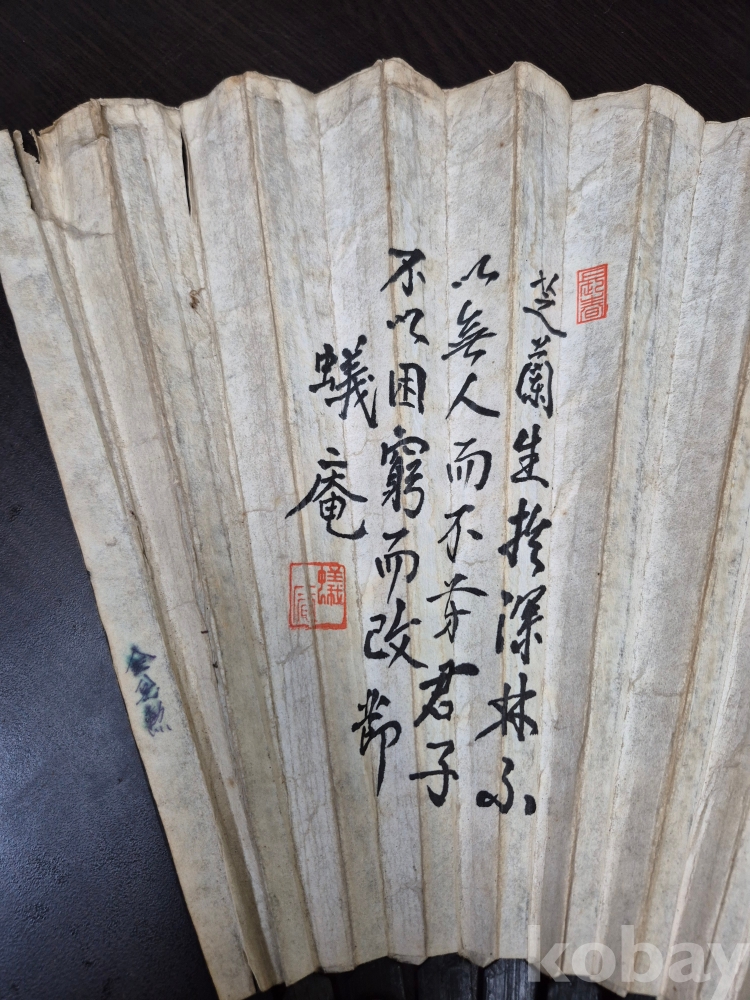 芝蘭生於深林不
以無人而不芳君子
不以困窮而改節
蟻庵
長春
蟻庵
kobay